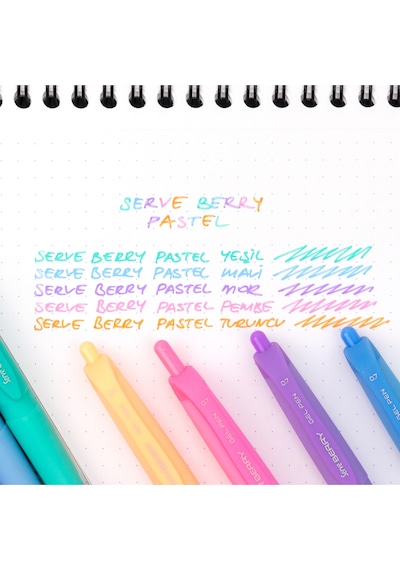 SERVE BERRY
PASTEL
SERVE BERRY PASTEL YEŞİL
SERVE BERRY PASTEL MAVİ
SERVE BERRY PASTEL MOR
SERVE BERRY PASTEL PEMBE
SERVE BERRY PASTEL TURUNCU
Serve
GEL PEN
Serve BERRY
GEL PEN
GEL PEN